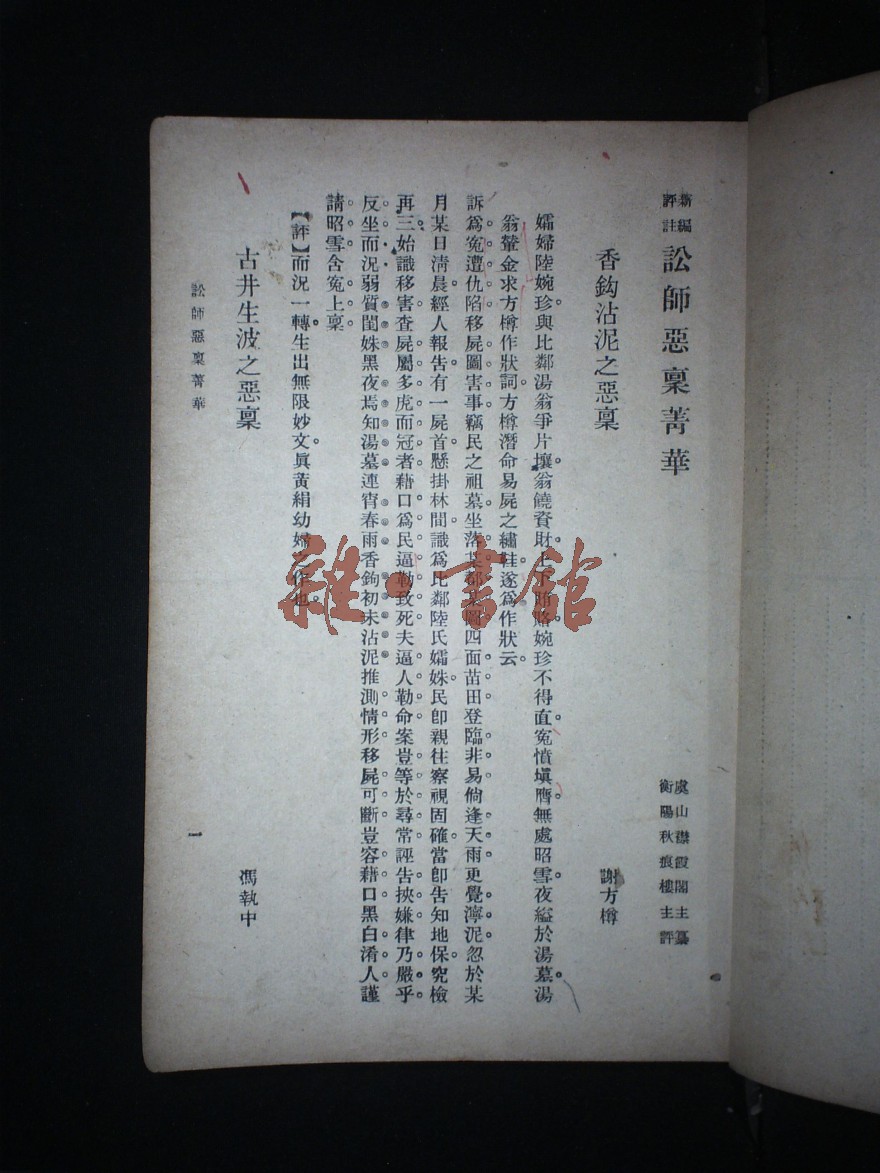 新編評註 訟師惡稟菁華
虞山襟霞閣主纂
衡陽秋痕樓主評
香鈎沾泥之惡稟 謝方樽
孀婦陸婉珍與比鄰湯翁爭片壤。翁饒資財上下賄賂婉珍不得直。寃憤塡膺無處昭雪。夜縊於湯墓。湯
翁輦金求方樽作狀詞。方樽潛命易屍之繡鞋。遂爲作狀云。
訴爲寃遭仇陷移屍圖害事。竊民之祖墓坐落某都某圖。四面苗田。登臨非易。倘逢天雨。更覺濘泥。忽於某
月某日淸晨。經人報告。有一屍首懸掛林間。識爲比鄰陸氏孀姝。民卽親往察視。固確。當卽告知地保。究檢
再三。始識移害。查屍屬多虎而冠者。藉口爲民逼勒致死。夫逼人勒命。案豈等於尋常。誣告挾嫌。律乃嚴乎
反坐。而況弱質閨姝。黑夜焉知湯墓。連宵春雨。香鉤初未沾泥。推測情形。移屍可斷。豈容藉口黑白淆人。謹
請昭雪含寃。上稟
【評】而況一轉。生出無限妙文。眞黃絹幼婦之作也。
古井生波之惡稟 馮執中
訟師惡稟菁華
一
雜書館